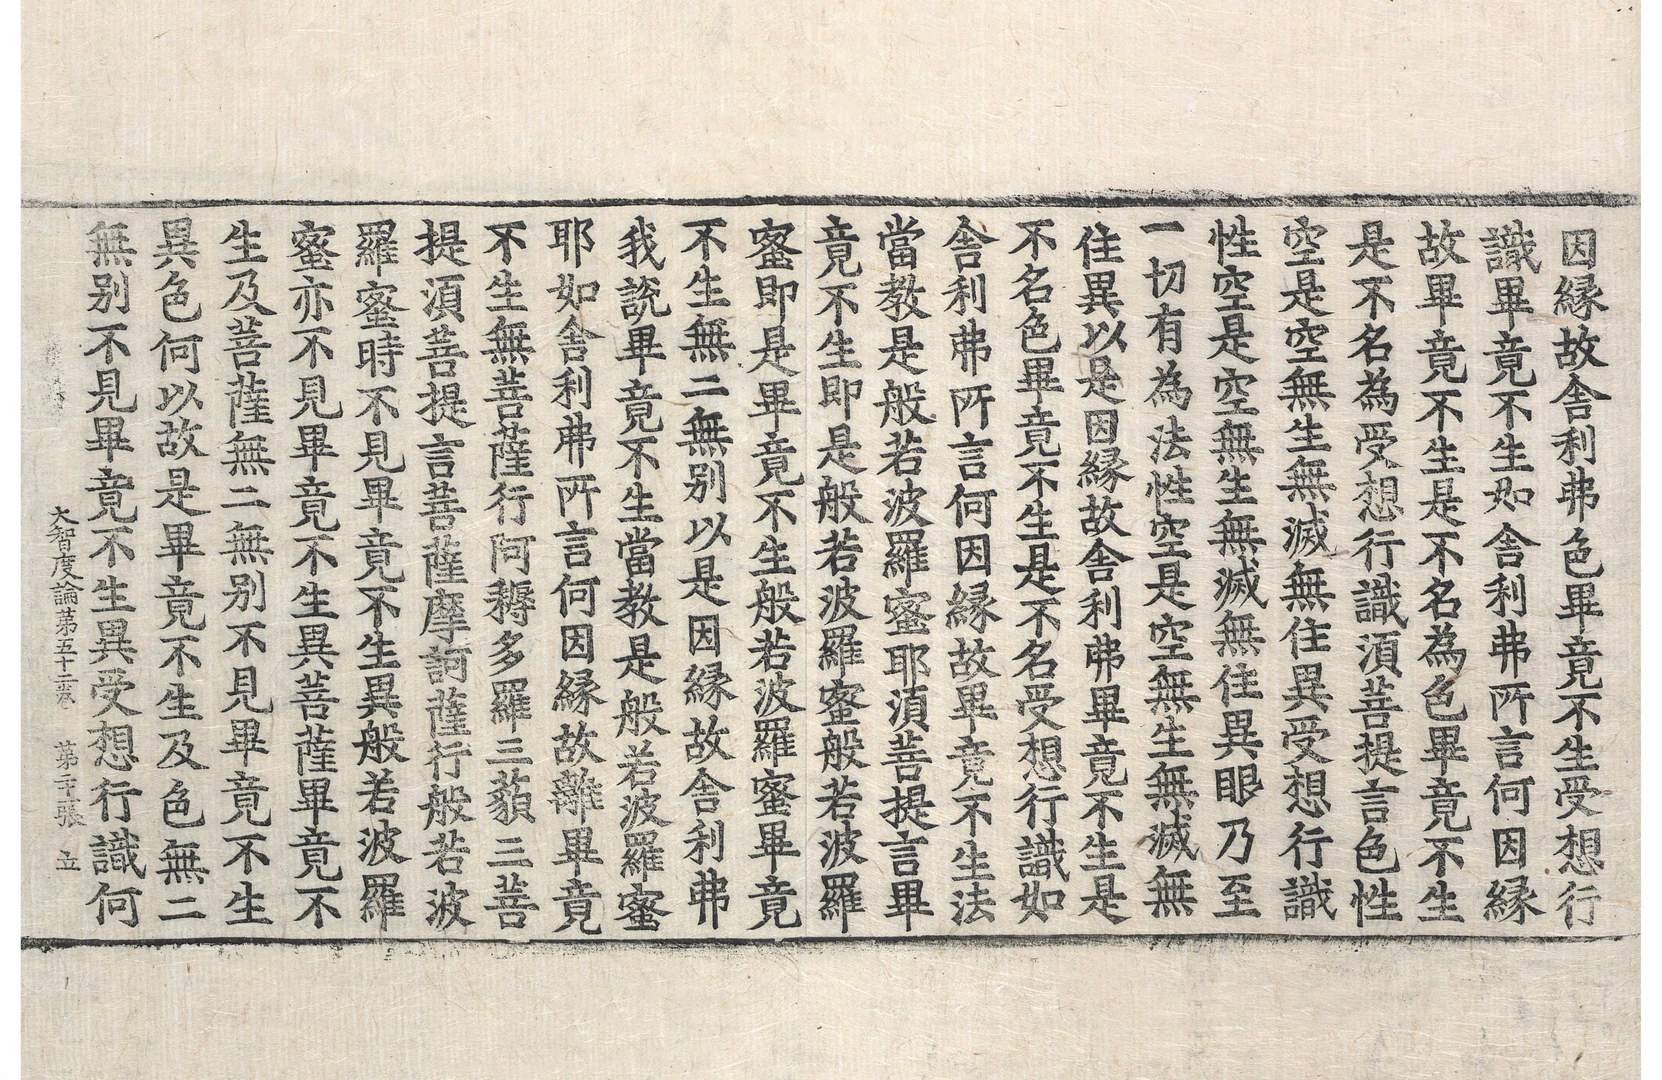 因緣故舍利弗色畢竟不生受想行
識畢竟不生如舍利弗所言何因緣
故畢竟不生是不名為色畢竟不生
是不名為受想行識湏菩提言色性
空是空無生無滅無住異受想行識
性空是空無生無滅無住異眼乃至
一切有為法性空是空無生無滅無
住異以是因緣故舍利弗畢竟不生是
不名色畢竟不生是不名受想行識如
舍利弗所言何因緣故畢竟不生法
當教是般若波羅蜜耶湏菩提言畢
竟不生即是般若波羅蜜般若波羅
蜜即是畢竟不生般若波羅蜜畢竟
不生無二無别以是因緣故舍利弗
我說畢竟不生當教是般若波羅蜜
耶如舍利弗所言何因緣故離畢竟
不生無菩薩行阿耨多羅三藐三菩
提湏菩提言菩薩摩訶薩行般若波
羅蜜時不見畢竟不生異般若波羅
蜜亦不見畢竟不生異菩薩畢竟不
生及菩薩無二無别不見畢竟不生
異色何以故是畢竟不生及色無二
無别不見畢竟不生異受想行識何
大智度論第五十三卷 第二十張